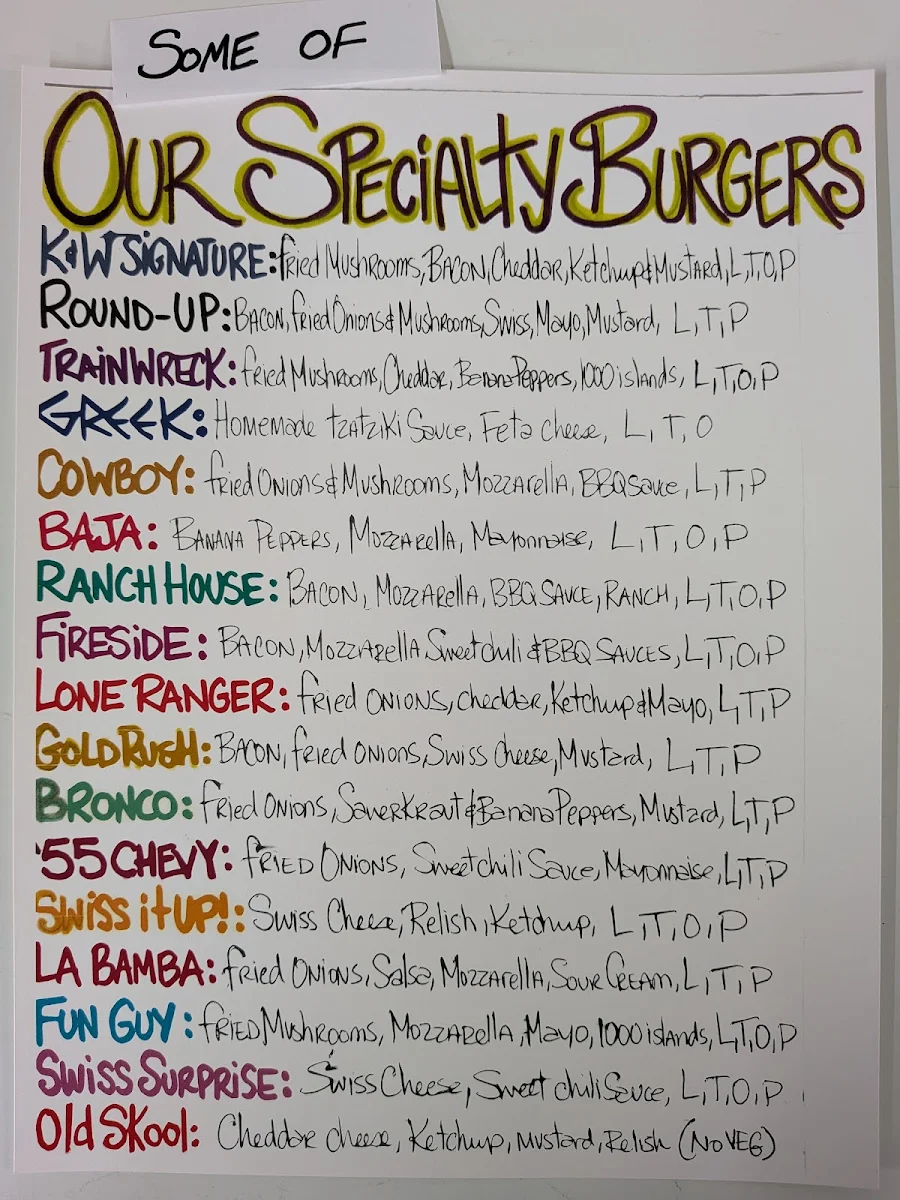 SOME OF
OUR SPECIALTY BURGERS
K&W SIGNATURE: fried Mushrooms, BACON, Cheddar, Ketchup & MUSTARD, L, T, O, P
ROUND-UP: BACON, fried Onions & Mushrooms, Swiss, Mayo, Mustard, L, T, P
TRAINWRECK: fried Mushrooms, Cheddar, Banana Peppers, 1000 islands, L, T, O, P
GREEK: Homemade tzatziki Sauce, Feta cheese, L, T, O
COWBOY: fried Onions & Mushrooms, Mozzarella, BBQ sauce, L, T, P
BAJA: BANANA PEPPERS, Mozzarella, Mayonnaise, L, T, O, P
RANCH HOUSE: BACON, Mozzarella, BBQ SAUCE, RANCH, L, T, O, P
FIRESIDE: BACON, Mozzarella Sweet chili & BBQ SAUCES, L, T, O, P
LONE RANGER: fried ONIONS, cheddar, Ketchup & Mayo, L, T, P
GOLD RUSH: BACON, fried ONIONS, Swiss cheese, Mustard, L, T, P
BRONCO: fried Onions, Sauerkraut & Banana Peppers, Mustard, L, T, P
'55 CHEVY: fRIED ONIONS, Sweet chili Sauce, Mayonnaise, L, T, P
SWISS it UP!: Swiss Cheese, Relish, Ketchup, L, T, O, P
LA BAMBA: fried Onions, Salsa, Mozzarella, SOUR CREAM, L, T, P
FUN GUY: fRIED Mushrooms, Mozzarella, Mayo, 1000 islands, L, T, O, P
SWISS SURPRISE: Swiss Cheese, Sweet chili Sauce, L, T, O, P
Old SKool: Cheddar cheese, Ketchup, mustard, Relish (NO VEG)